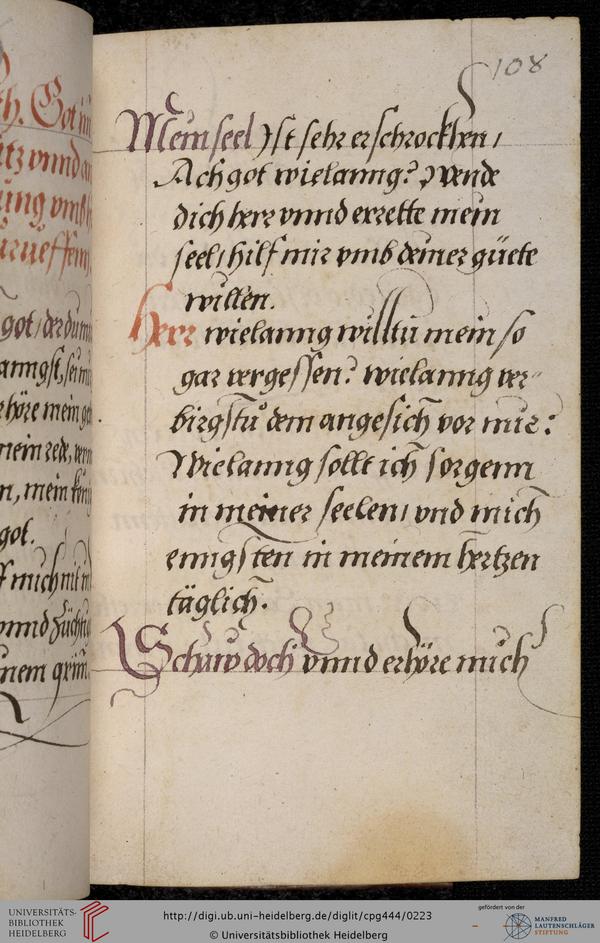 108
Mein seel Jst sehr erschrockhen /
Ach got wielanng? Wende
dich herr vnnd errette mein
seel / hilf mir vmb deiner güete
willen.
Herr wielanng willtu mein so
gar vergessen? wielanng ver-
birgstu dein angesich vor mir?
Wielanng sollt ich sorgenn
in meiner seelen / vnd mich
enngsten in meinem hertzen
täglich.
Schaw doch vnnd erhöre mich
got / der du
anngst, sei
rhöre mein
mein rede,
n, mein
got.
mich nit
nem grim
UNIVERSITÄTS-
BIBLIOTHEK
HEIDELBERG
http://digi.ub.uni-heidelberg.de/diglit/cpg444/0223
© Universitätsbibliothek Heidelberg
gefördert von der
MANFRED
LAUTENSCHLÄGER
STIFTUNG